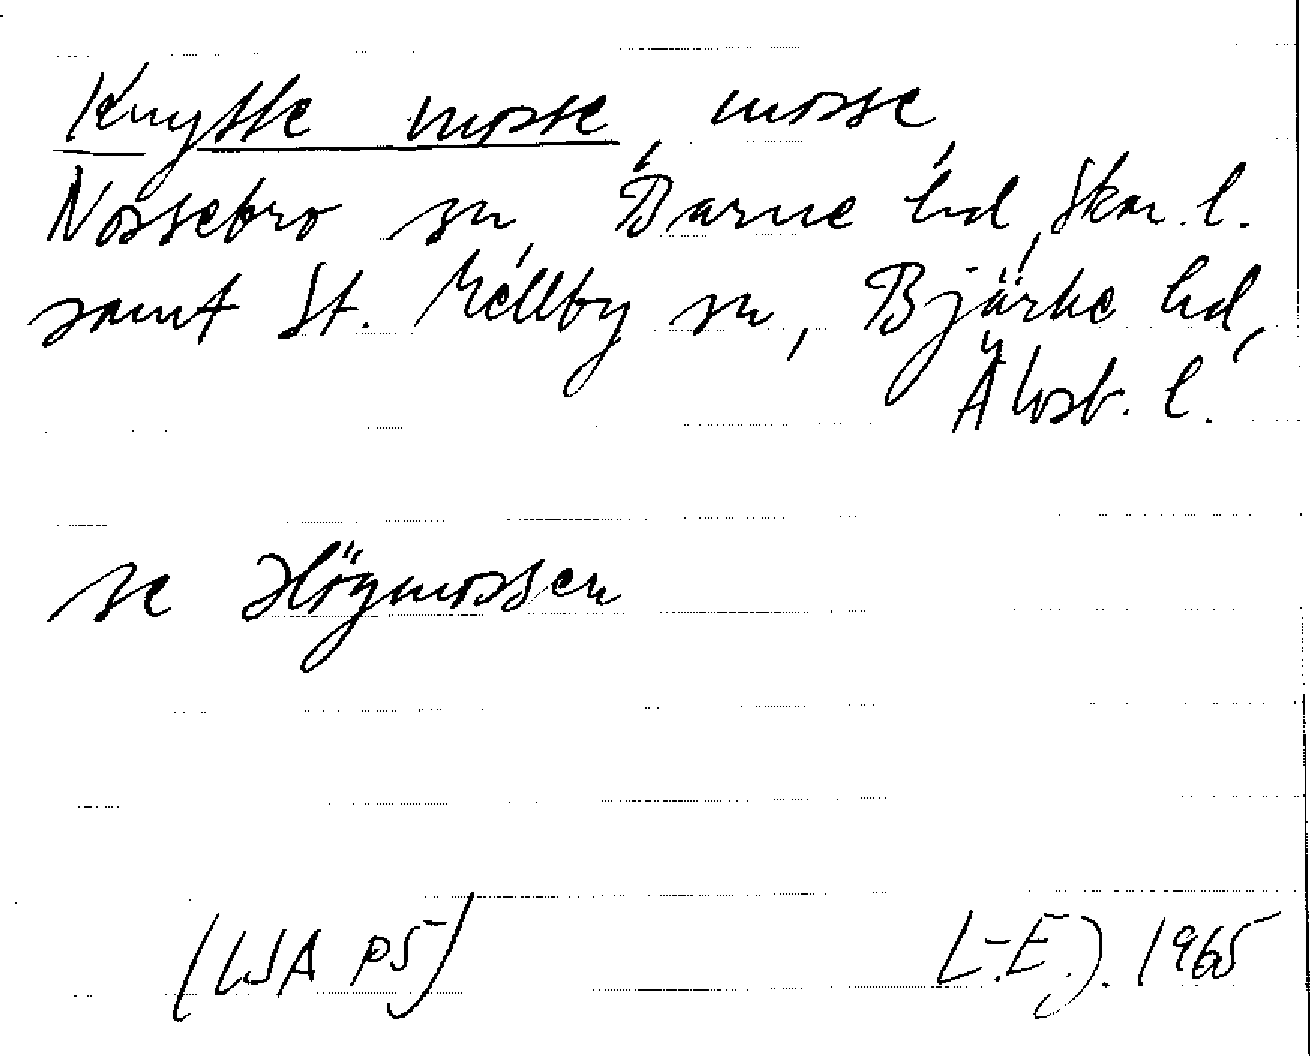 Knytte mosse, mosse
Nossebro sn, Barne hd, Skar. l.
samt St. Mellby sn, Bjärke hd,
Älvsb. l.
se Högmossen
(LSA P5)
L.-E.J. 1965